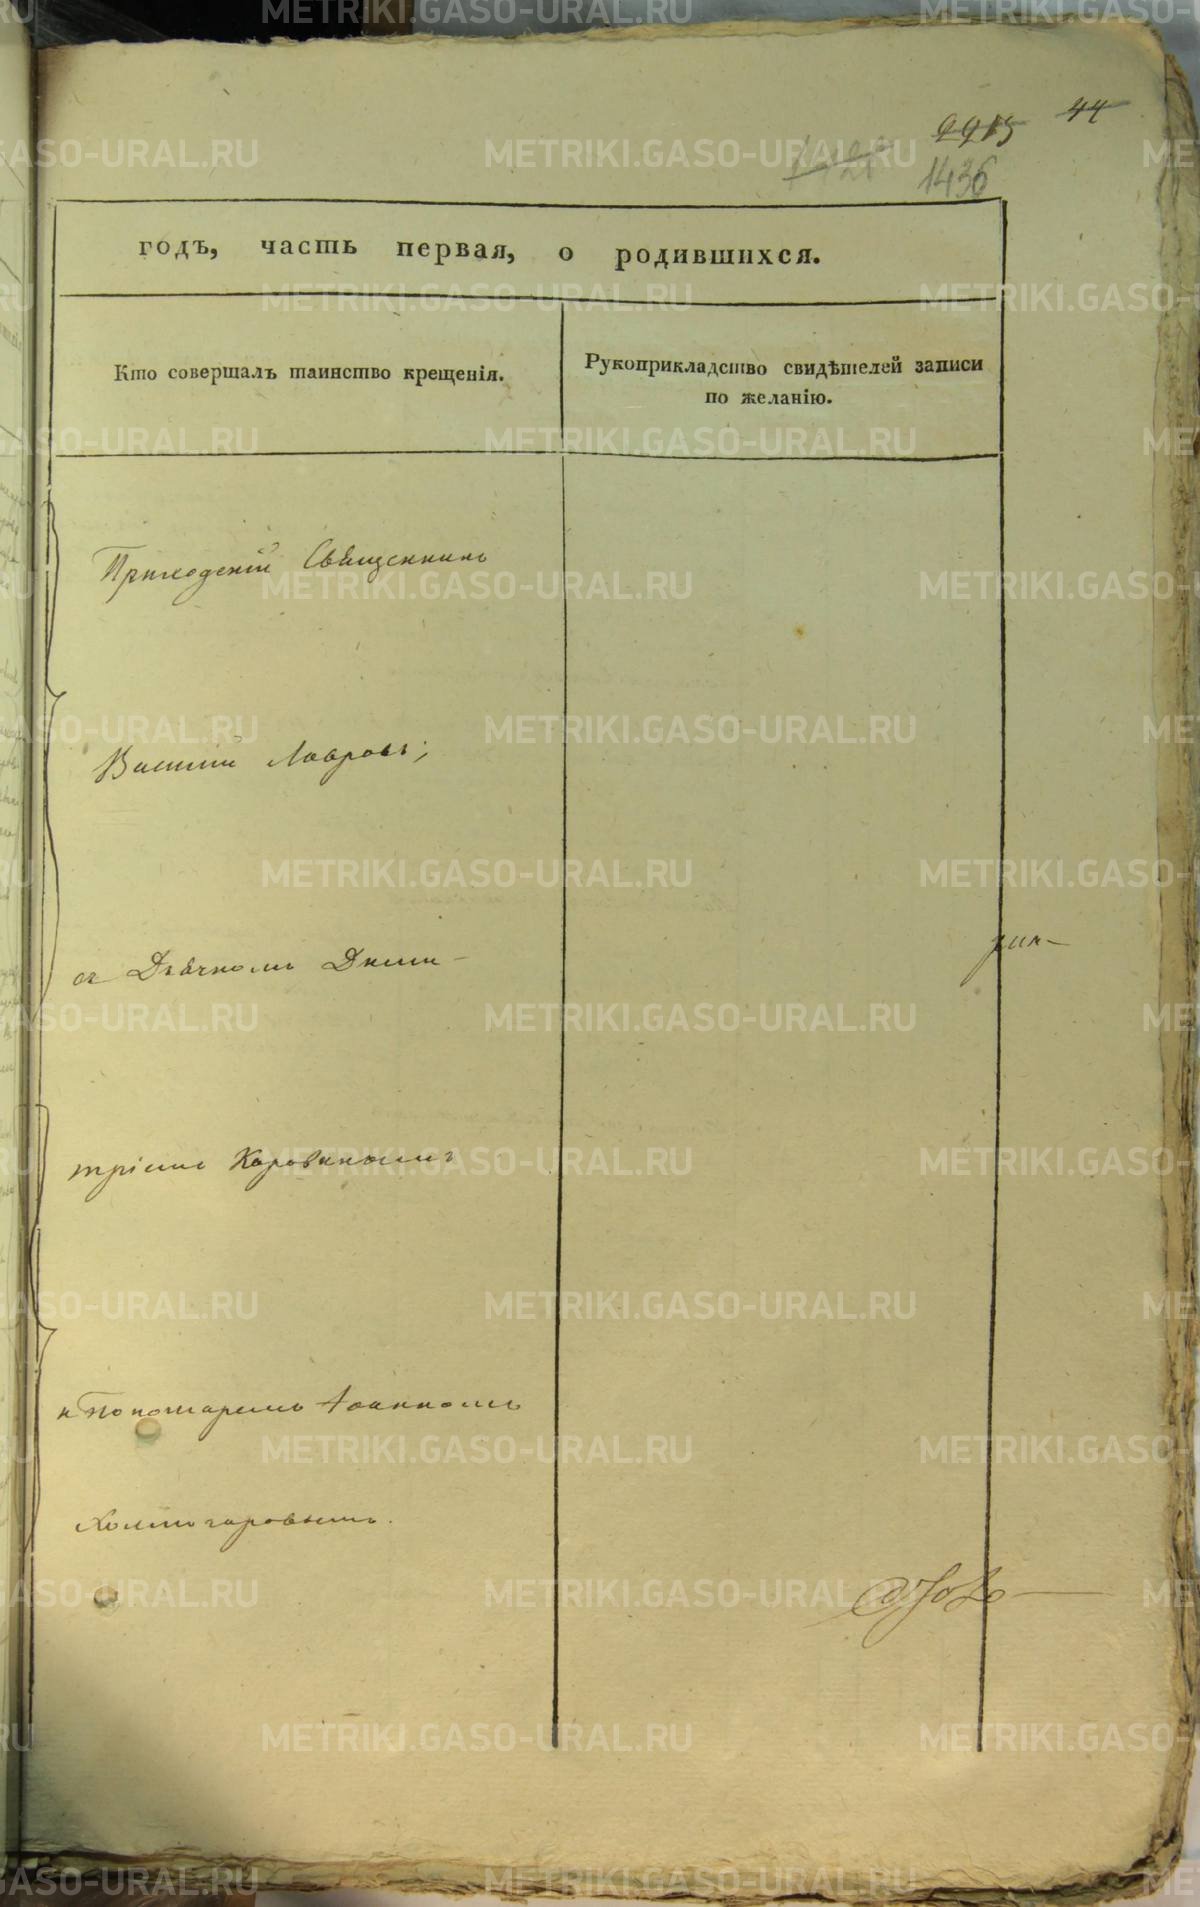 44
2215
1436
годъ, часть первая, о родившихся.
Кто совершалъ таинство крещенія.
Рукоприкладство свидѣтелей записи
по желанію.
Приходскій Священникъ
Василій Лавровъ;
съ Дьячкомъ Дими-
тріемъ Коровинымъ
и Пономаремъ Іоанномъ
Холмогоровымъ.
METRIKI.GASO-URAL.RU